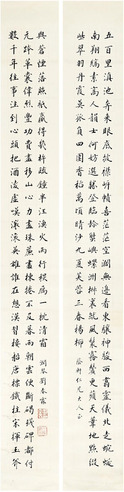 五百里滇池奔來眼底披襟岸幘喜茫茫空闊無邊看東驤神駿西翥靈儀北走蜿蜒
南翔縞素高人韻士何妨選勝登臨趁蟹嶼螺洲梳裹就風鬟霧鬢更蘋天葦地點綴
些翠羽丹霞莫孤負四圍香稻萬頃晴沙九夏芙蓉三春楊柳
仁兄大人正
數千年往事注到心頭把酒凌虛嘆滾滾英雄誰在想漢習樓船唐標鐵柱宋揮玉斧
元跨革囊偉烈豐功費盡移山心力儘珠簾畫棟捲不及暮雨朝雲便斷碣殘碑都付
與蒼煙落照祇贏得幾杵疏鐘半江漁火兩行秋雁一枕清霜
潤琴劉春霖